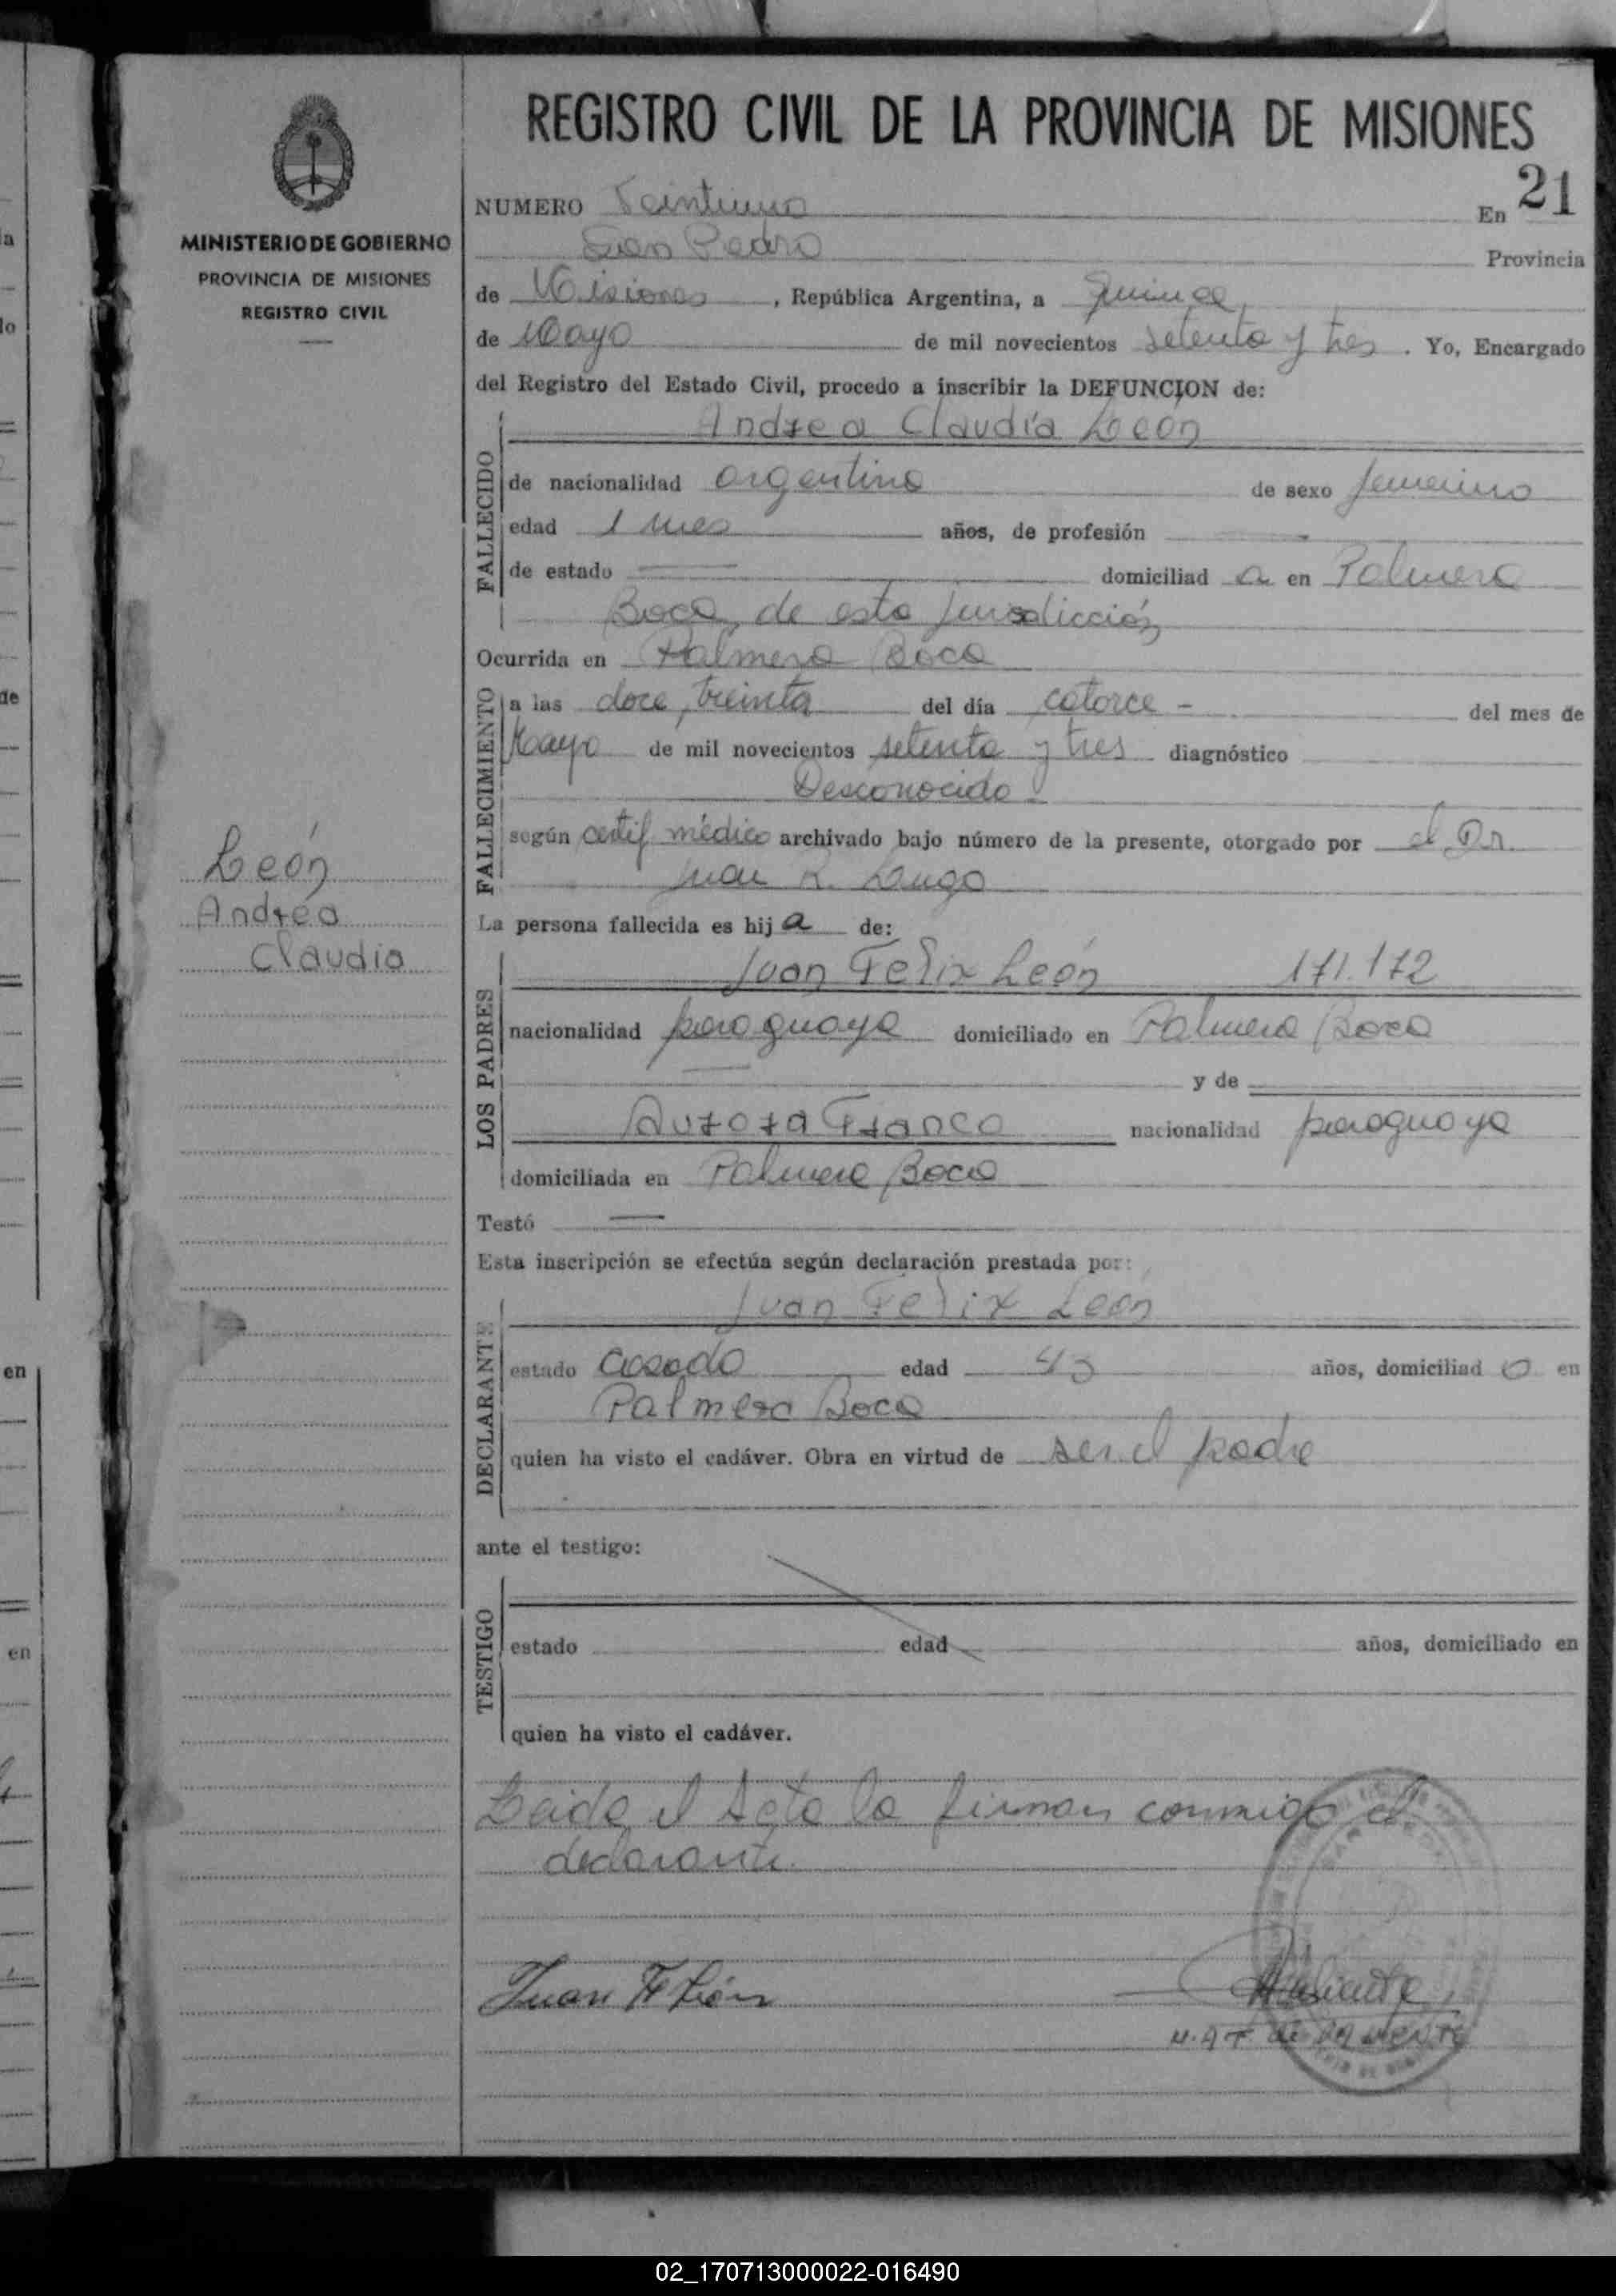 REGISTRO CIVIL DE LA PROVINCIA DE MISIONES
MINISTERIO DE GOBIERNO
PROVINCIA DE MISIONES
REGISTRO CIVIL
NUMERO Veintiuno En 21
San Pedro Provincia
de Misiones, República Argentina, a quince
de Mayo de mil novecientos setenta y tres. Yo, Encargado
del Registro del Estado Civil, procedo a inscribir la DEFUNCION de:
FALLECIDO
Andrea Claudia León
de nacionalidad argentina de sexo femenino
edad 1 mes años, de profesión
de estado domiciliad a en Palmera
Boca de esta Jurisdicción
Ocurrida en Palmera Boca
FALLECIMIENTO
a las doce, treinta del día catorce - del mes de
Mayo de mil novecientos setenta y tres diagnóstico
Desconocido
según certif. médico archivado bajo número de la presente, otorgado por el Dr.
Juan R. Lugo
León
Andrea
Claudia
La persona fallecida es hij a de:
LOS PADRES
Juan Felix León 171.172
nacionalidad paraguaya domiciliado en Palmera Boca
y de
Aurora Franco nacionalidad paraguaya
domiciliada en Palmera Boca
Testó
Esta inscripción se efectúa según declaración prestada por:
DECLARANTE
Juan Felix León
estado casado edad 43 años, domiciliad o en
Palmera Boca
quien ha visto el cadáver. Obra en virtud de ser el padre
ante el testigo:
TESTIGO
estado edad años, domiciliado en
quien ha visto el cadáver.
Leida el Acta la firman conmigo el
declarante.
Juan F León
02_170713000022-016490